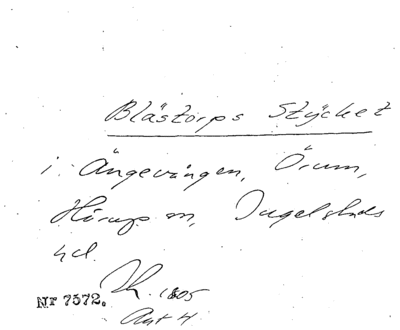 Blästorps Stycket
i Ängavången, Örum,
Hörups sn, Ingelstads
hd.
Nr 7572. Lh. 1805
Akt 4